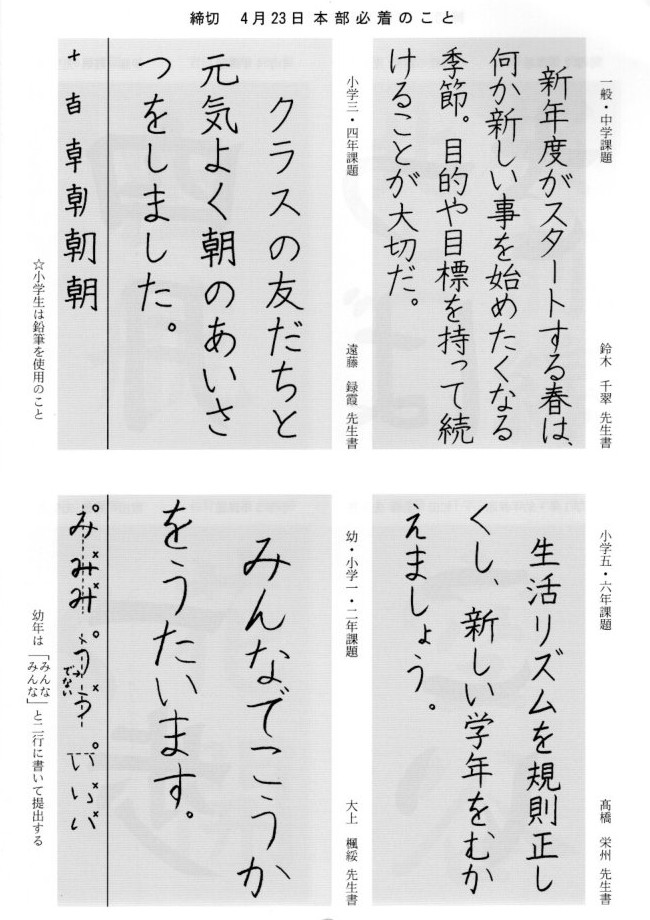 締切　4月23日本部必着のこと
一般・中学課題
鈴木　千翠　先生書
新年度がスタートする春は、
何か新しい事を始めたくなる
季節。目的や目標を持って続
けることが大切だ。
小学三・四年課題
遠藤　録霞　先生書
クラスの友だちと
元気よく朝のあいさ
つをしました。
十
𠦝
朝
朝
☆小学生は鉛筆を使用のこと
小学五・六年課題
髙橋　栄州　先生書
生活リズムを規則正し
くし、新しい学年をむか
えましょう。
幼・小学一・二年課題
大上　楓綏　先生書
みんなでこうか
をうたいます。
みみみ
うう
でない
いいい
幼年は「みんな
みんな」と二行に書いて提出する